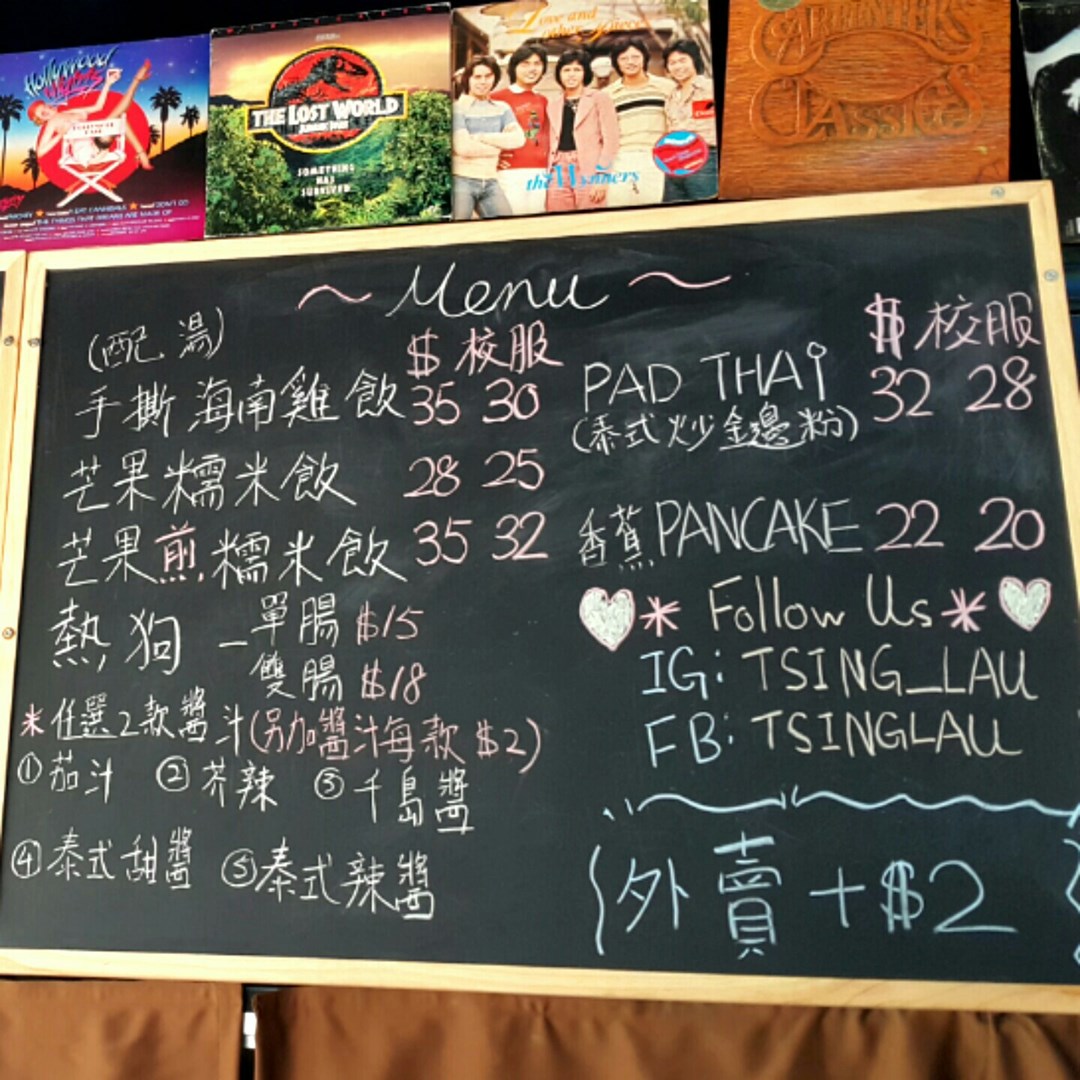 Hollywood Nights
THE LOST WORLD
JURASSIC PARK
SOMETHING
HAS
SURVIVED
Love and
other Pieces
the Wynners
CARPENTERS
CLASSICS
~ Menu ~
(配湯)
$ 校服
手撕海南雞飯 35 30
芒果糯米飯 28 25
芒果煎糯米飯 35 32
熱狗 - 單腸 $15
雙腸 $18
*任選2款醬汁(另加醬汁每款 $2)
①茄汁 ②芥辣 ③千島醬
④泰式甜醬 ⑤泰式辣醬
$ 校服
PAD THAI 32 28
(泰式炒金邊粉)
香蕉PANCAKE 22 20
* Follow Us *
IG: TSING_LAU
FB: TSINGLAU
外賣 +$2